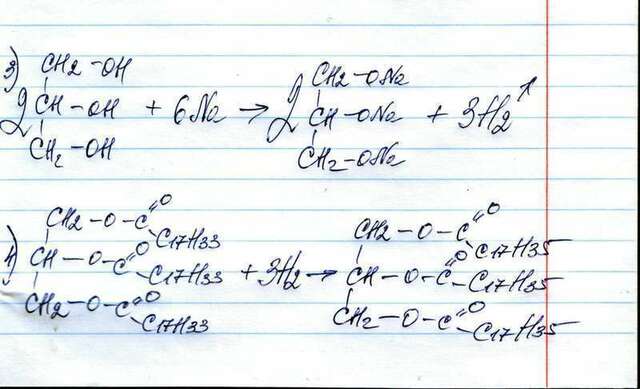 3)
CH2-OH CH2-ONa
2 CH-OH + 6Na → 2 CH-ONa + 3H2↑
CH2-OH CH2-ONa
4)
CH2-O-C=O C17H33 CH2-O-C=O C17H35
CH-O-C=O C17H33 + 3H2 → CH-O-C=O C17H35
CH2-O-C=O C17H33 CH2-O-C=O C17H35